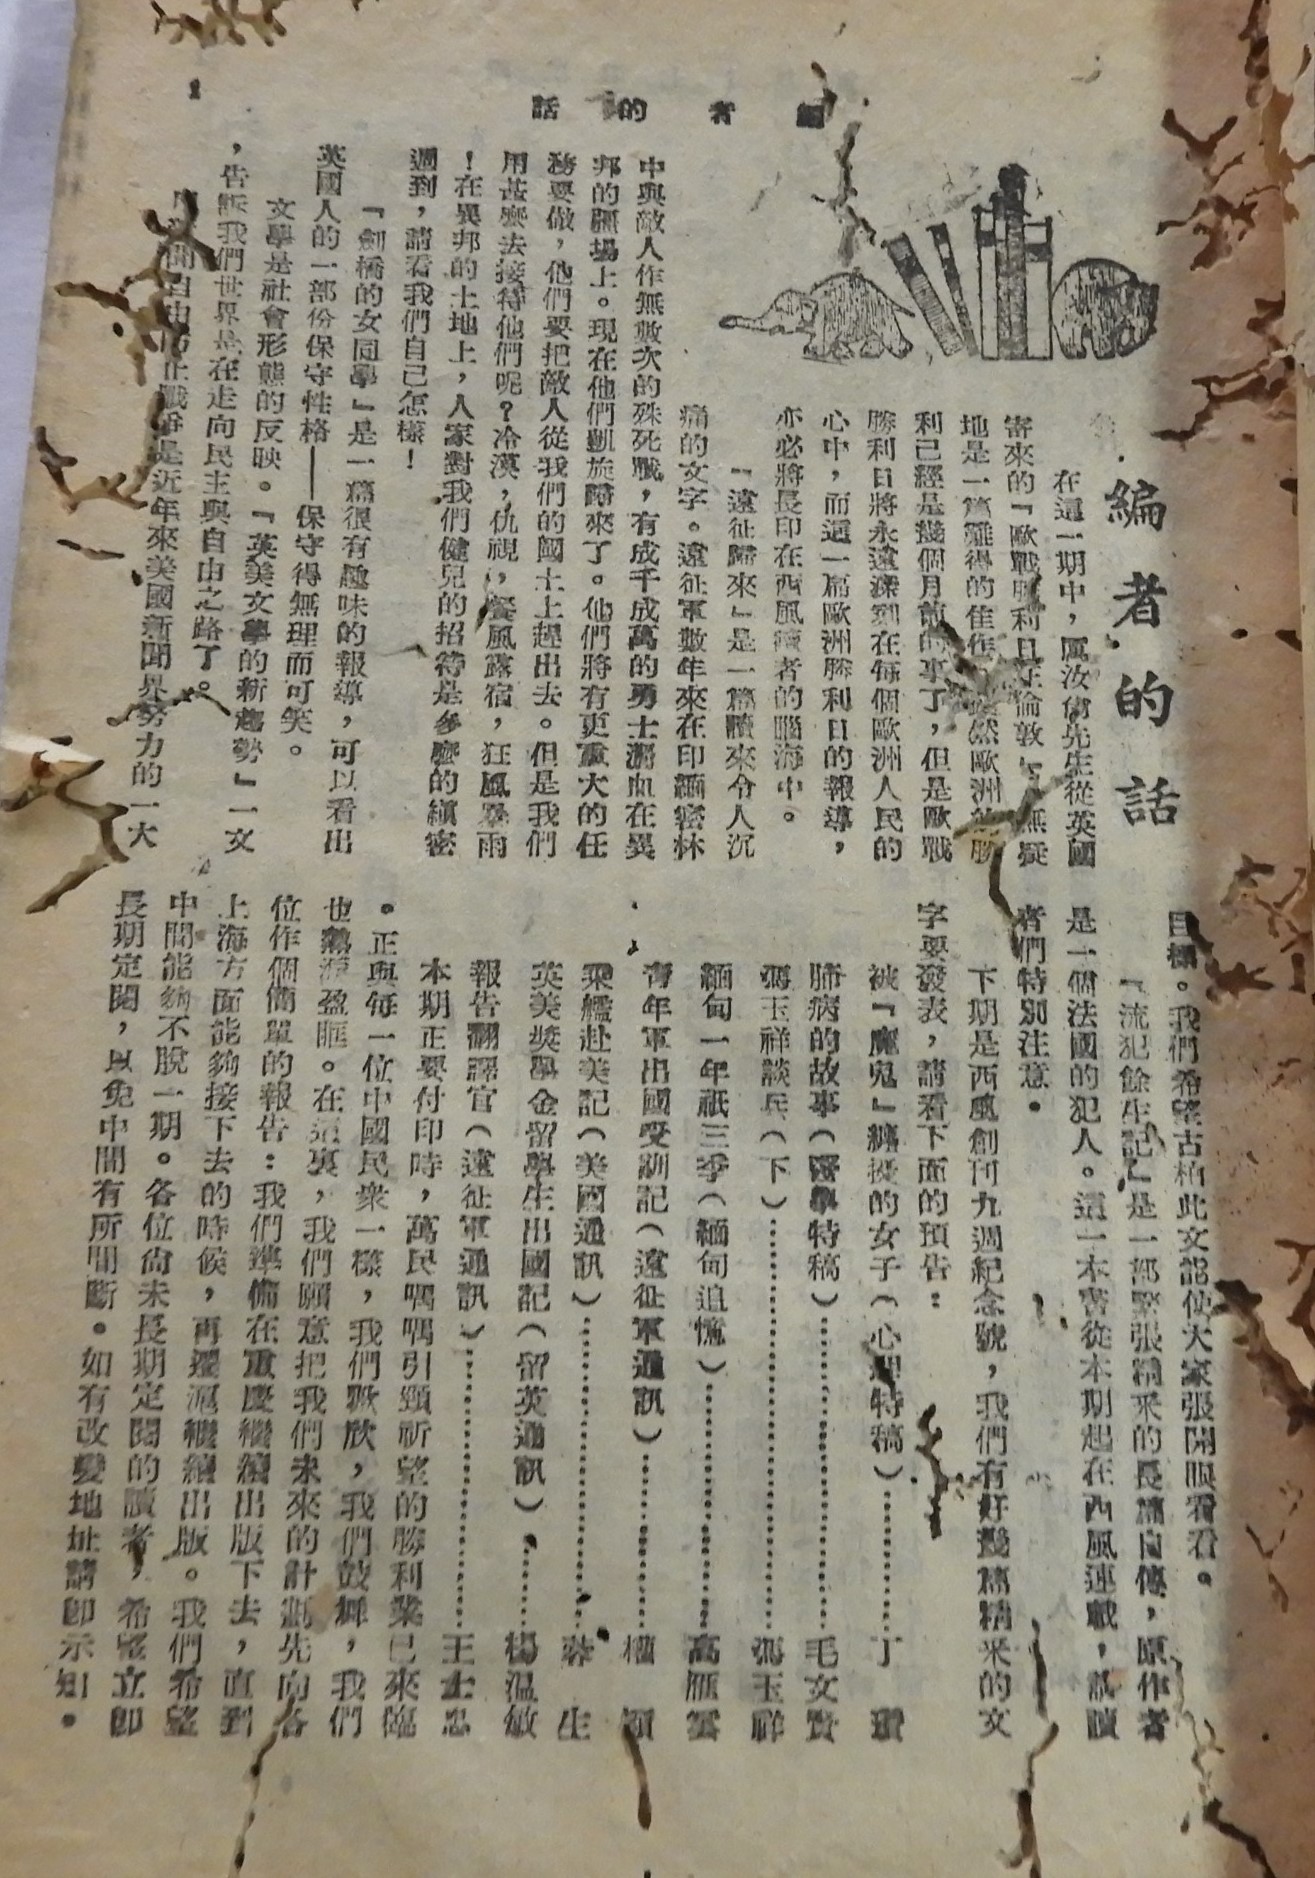 編者的話
1
編者的話
在這一期中，厲汝尙先生從英國
寄來的『歐戰勝利日在倫敦』，無疑
地是一篇難得的佳作。雖然歐洲的勝
利已經是幾個月前的事了，但是歐戰
勝利日將永遠深刻在每個歐洲人民的
心中，而這一篇歐洲勝利日的報導，
亦必將長印在西風讀者的腦海中。
『遠征歸來』是一篇讀來令人沉
痛的文字。遠征軍數年來在印緬密林
中與敵人作無數次的殊死戰，有成千成萬的勇士洒血在異
邦的疆場上。現在他們凱旋歸來了。他們將有更重大的任
務要做，他們要把敵人從我們的國土上趕出去。但是我們
用甚麽去接待他們呢？冷漠，仇視，餐風露宿，狂風暴雨
！在異邦的土地上，人家對我們健兒的招待是多麽的縝密
週到，請看我們自己怎樣！
『劍橋的女同學』是一篇很有趣味的報導，可以看出
英國人的一部份保守性格——保守得無理而可笑。
文學是社會形態的反映。『英美文學的新趨勢』一文
，告訴我們世界是在走向民主與自由之路了。
聞自由防止戰爭是近年來美國新聞界努力的一大
目標。我們希望古柏此文能使大家張開眼看看。
『流犯餘生記』是一部緊張精采的長篇自傳，原作者
是一個法國的犯人。這一本書從本期起在西風連載，請讀
者們特別注意。
下期是西風創刊九週紀念號，我們有好幾篇精采的文
字要發表，請看下面的預告：
被『魔鬼』纏擾的女子（心理特稿）………丁　瓚
肺病的故事（醫學特稿）………毛文賢
馮玉祥談兵（下）………馮玉祥
緬甸一年祇三季（緬甸追憶）………高雁雲
青年軍出國受訓記（遠征軍通訊）………權　頤
乘艦赴美記（美國通訊）………蓉　生
英美獎學金留學生出國記（留英通訊）………楊温敏
報告翻譯官（遠征軍通訊）………王士忠
本期正要付印時，萬民喁喁引頸祈望的勝利業已來臨
。正與每一位中國民衆一樣，我們歡欣，我們鼓舞，我們
也熱淚盈眶。在這裏，我們願意把我們未來的計劃先向各
位作個簡單的報告：我們準備在重慶繼續出版下去，直到
上海方面能夠接下去的時候，再遷滬繼續出版。我們希望
中間能夠不脫一期。各位尙未長期定閱的讀者，希望立卽
長期定閱，以免中間有所間斷。如有改變地址請卽示知。